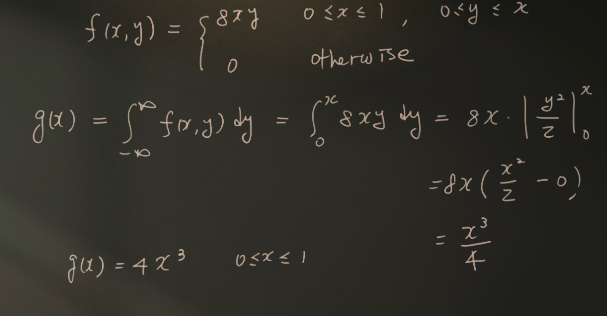 f(x,y) = { 8xy 0≤x≤1, 0≤y≤x
0 otherwise
g(x) = ∫_{-∞}^{∞} f(x,y) dy = ∫_0^x 8xy dy = 8x · | y²/2 |_0^x
= 8x ( x²/2 - 0 )
= x³/4
g(x) = 4x³ 0≤x≤1